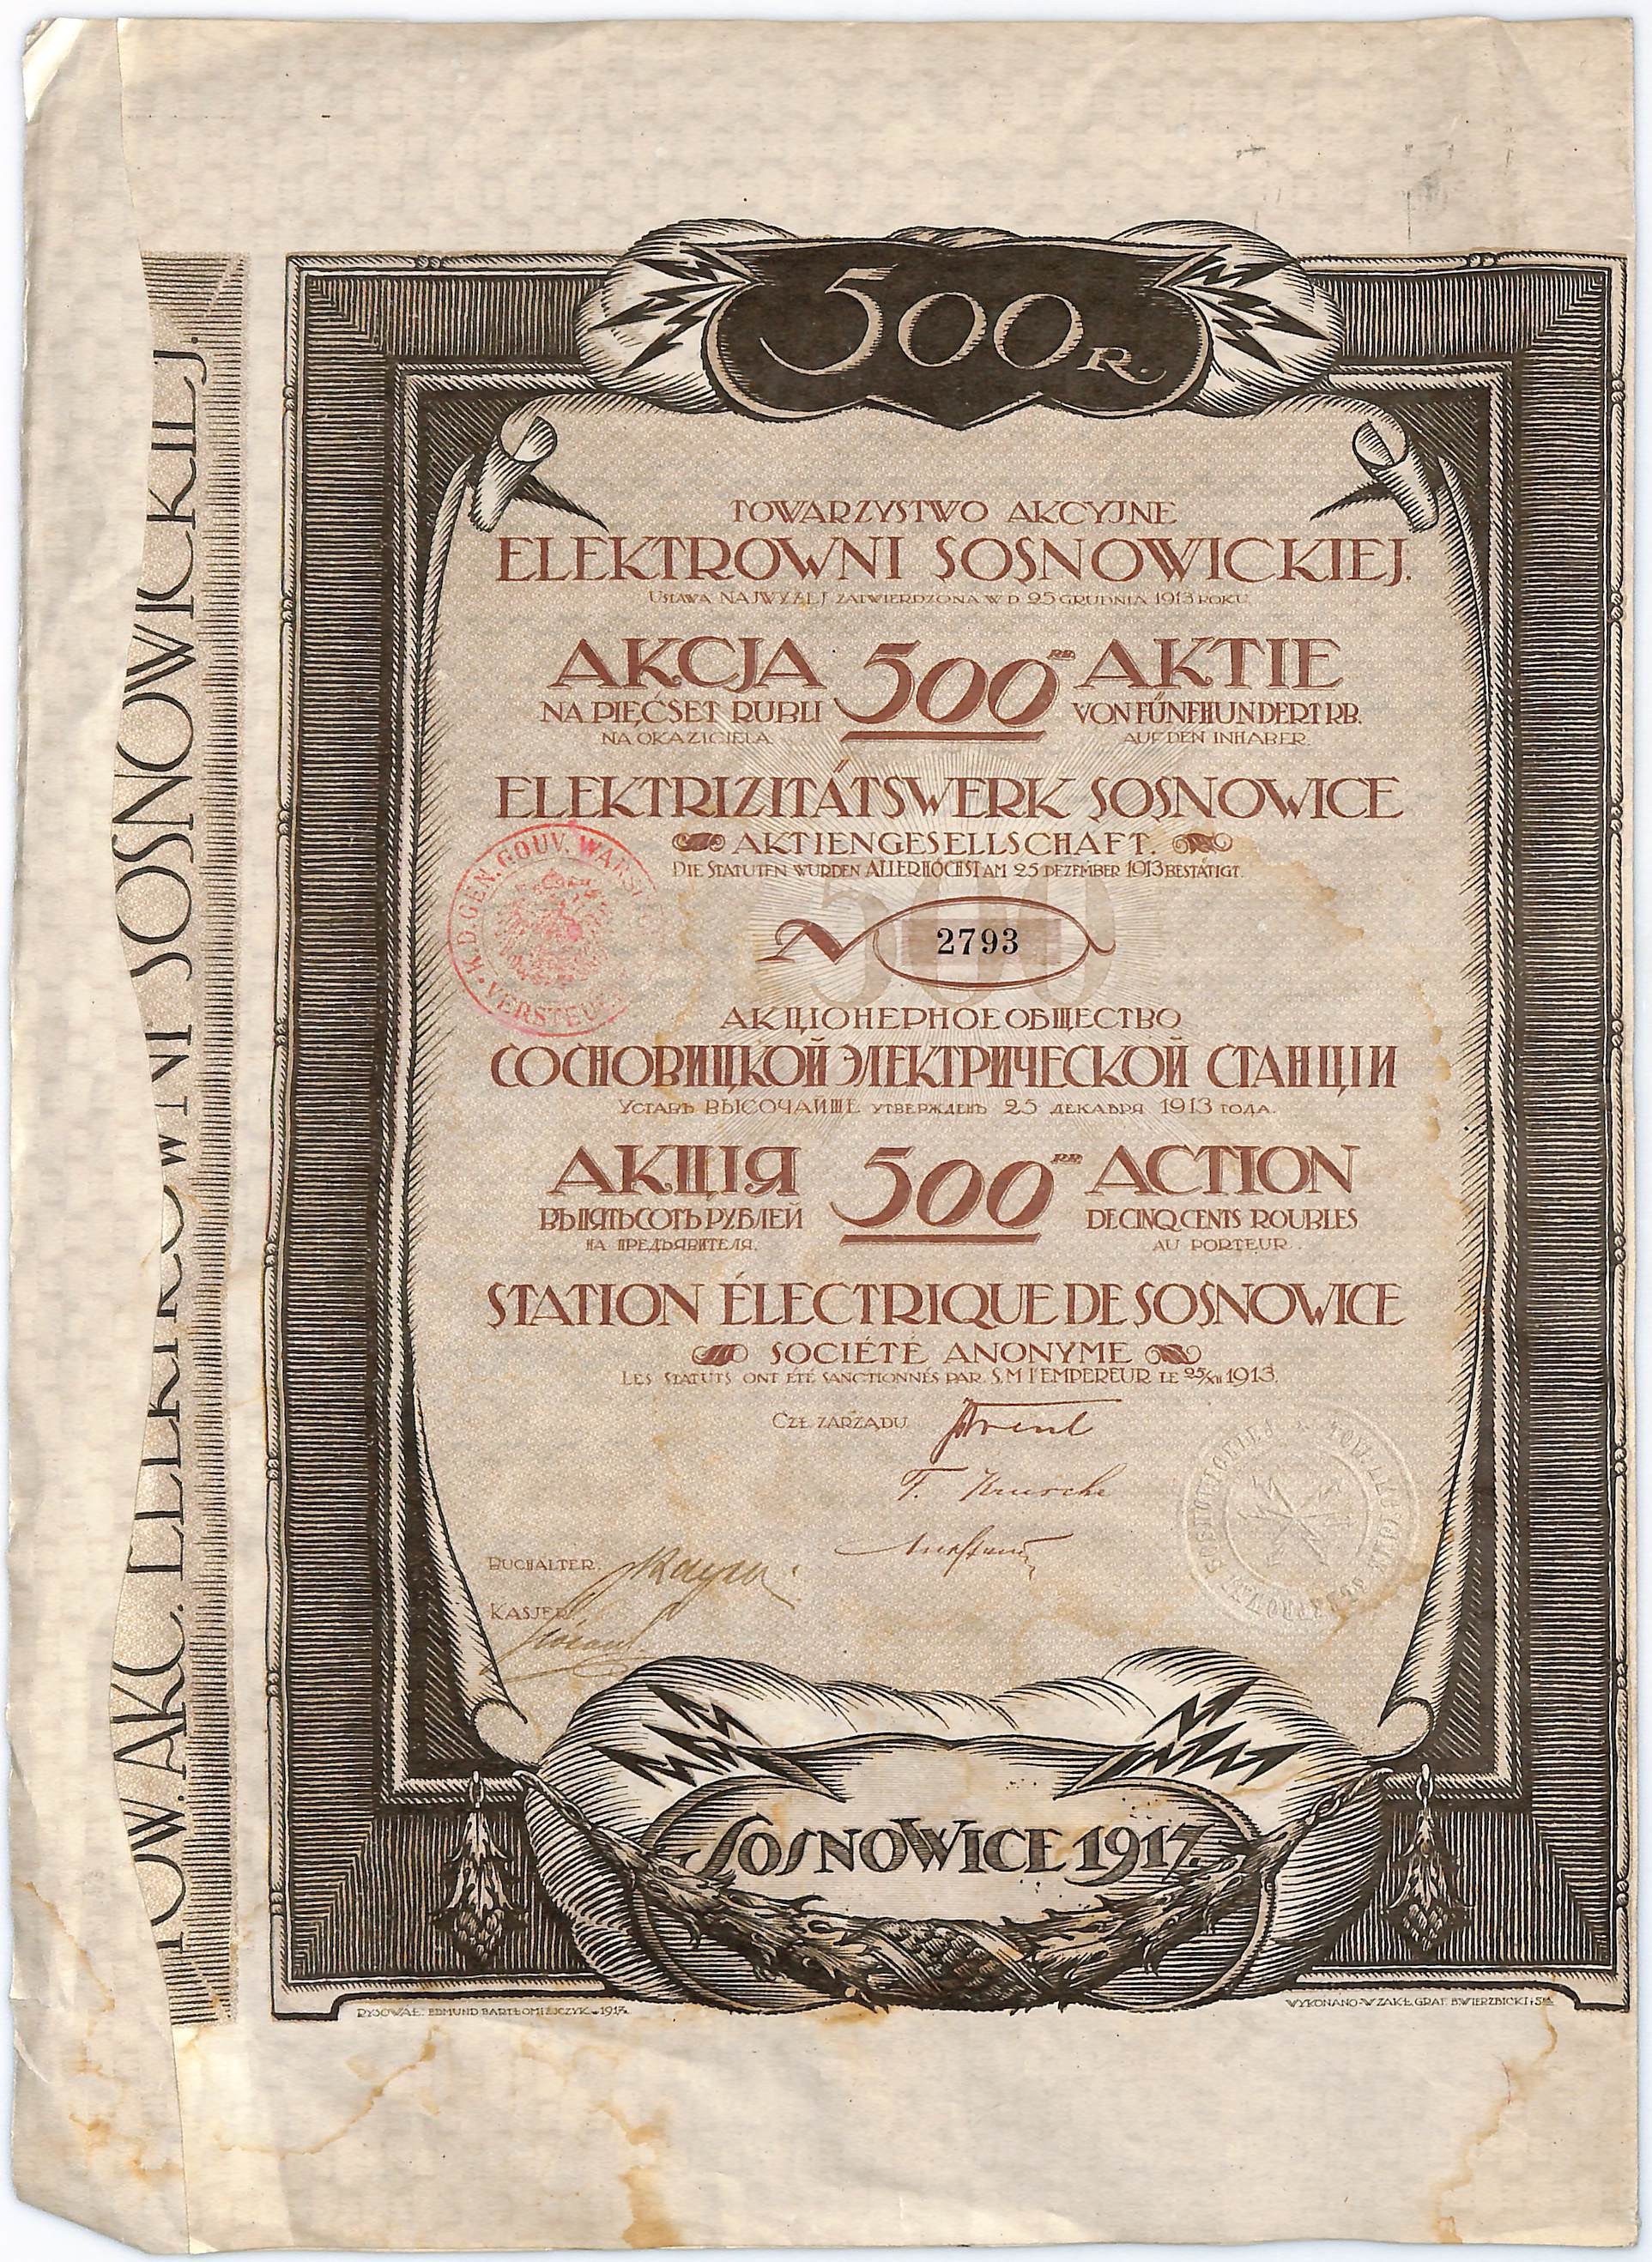 500 R.
TOWARZYSTWO AKCYJNE
ELEKTROWNI SOSNOWICKIEJ.
USTAWA NAJWYŻEJ ZATWIERDZONA W D 25 GRUDNIA 1913 ROKU
AKCJA 500 RB AKTIE
NA PIĘĆSET RUBLI VON FÜNFHUNDERT RB.
NA OKAZICIELA AUF DEN INHABER.
ELEKTRIZITÄTSWERK SOSNOWICE
AKTIENGESELLSCHAFT.
DIE STATUTEN WURDEN ALLERHÖCHST AM 25 DEZEMBER 1913 BESTÄTIGT.
K.D.GEN.GOUV. WARSCH
VERSTEU
500
N 2793
АКЦІОНЕРНОЕ ОБЩЕСТВО
СОСНОВИЦКОЙ ЭЛЕКТРИЧЕСКОЙ СТАНЦІИ
УСТАВЪ ВЫСОЧАЙШЕ УТВЕРЖДЕНЪ 25 ДЕКАБРЯ 1913 ГОДА.
АКЦІЯ 500 RB ACTION
ВЪ ПЯТЬСОТЪ РУБЛЕЙ DE CINQ CENTS ROUBLES
НА ПРЕДЪЯВИТЕЛЯ. AU PORTEUR.
STATION ÉLECTRIQUE DE SOSNOWICE
SOCIÉTÉ ANONYME
LES STATUTS ONT ÉTÉ SANCTIONNÉS PAR S.M L'EMPEREUR LE 25/XII 1913.
CZŁ ZARZĄDU
F. Krusche
BUCHALTER.
KASJER
SOSNOWICE 1917.
RYSOWAŁ: EDMUND BARTŁOMIEJCZYK w 1917r.
WYKONANO W ZAKŁ. GRAF. B. WIERZBICKI i Ska
TOW. AKC. ELEKTROWNI SOSNOWICKIEJ.